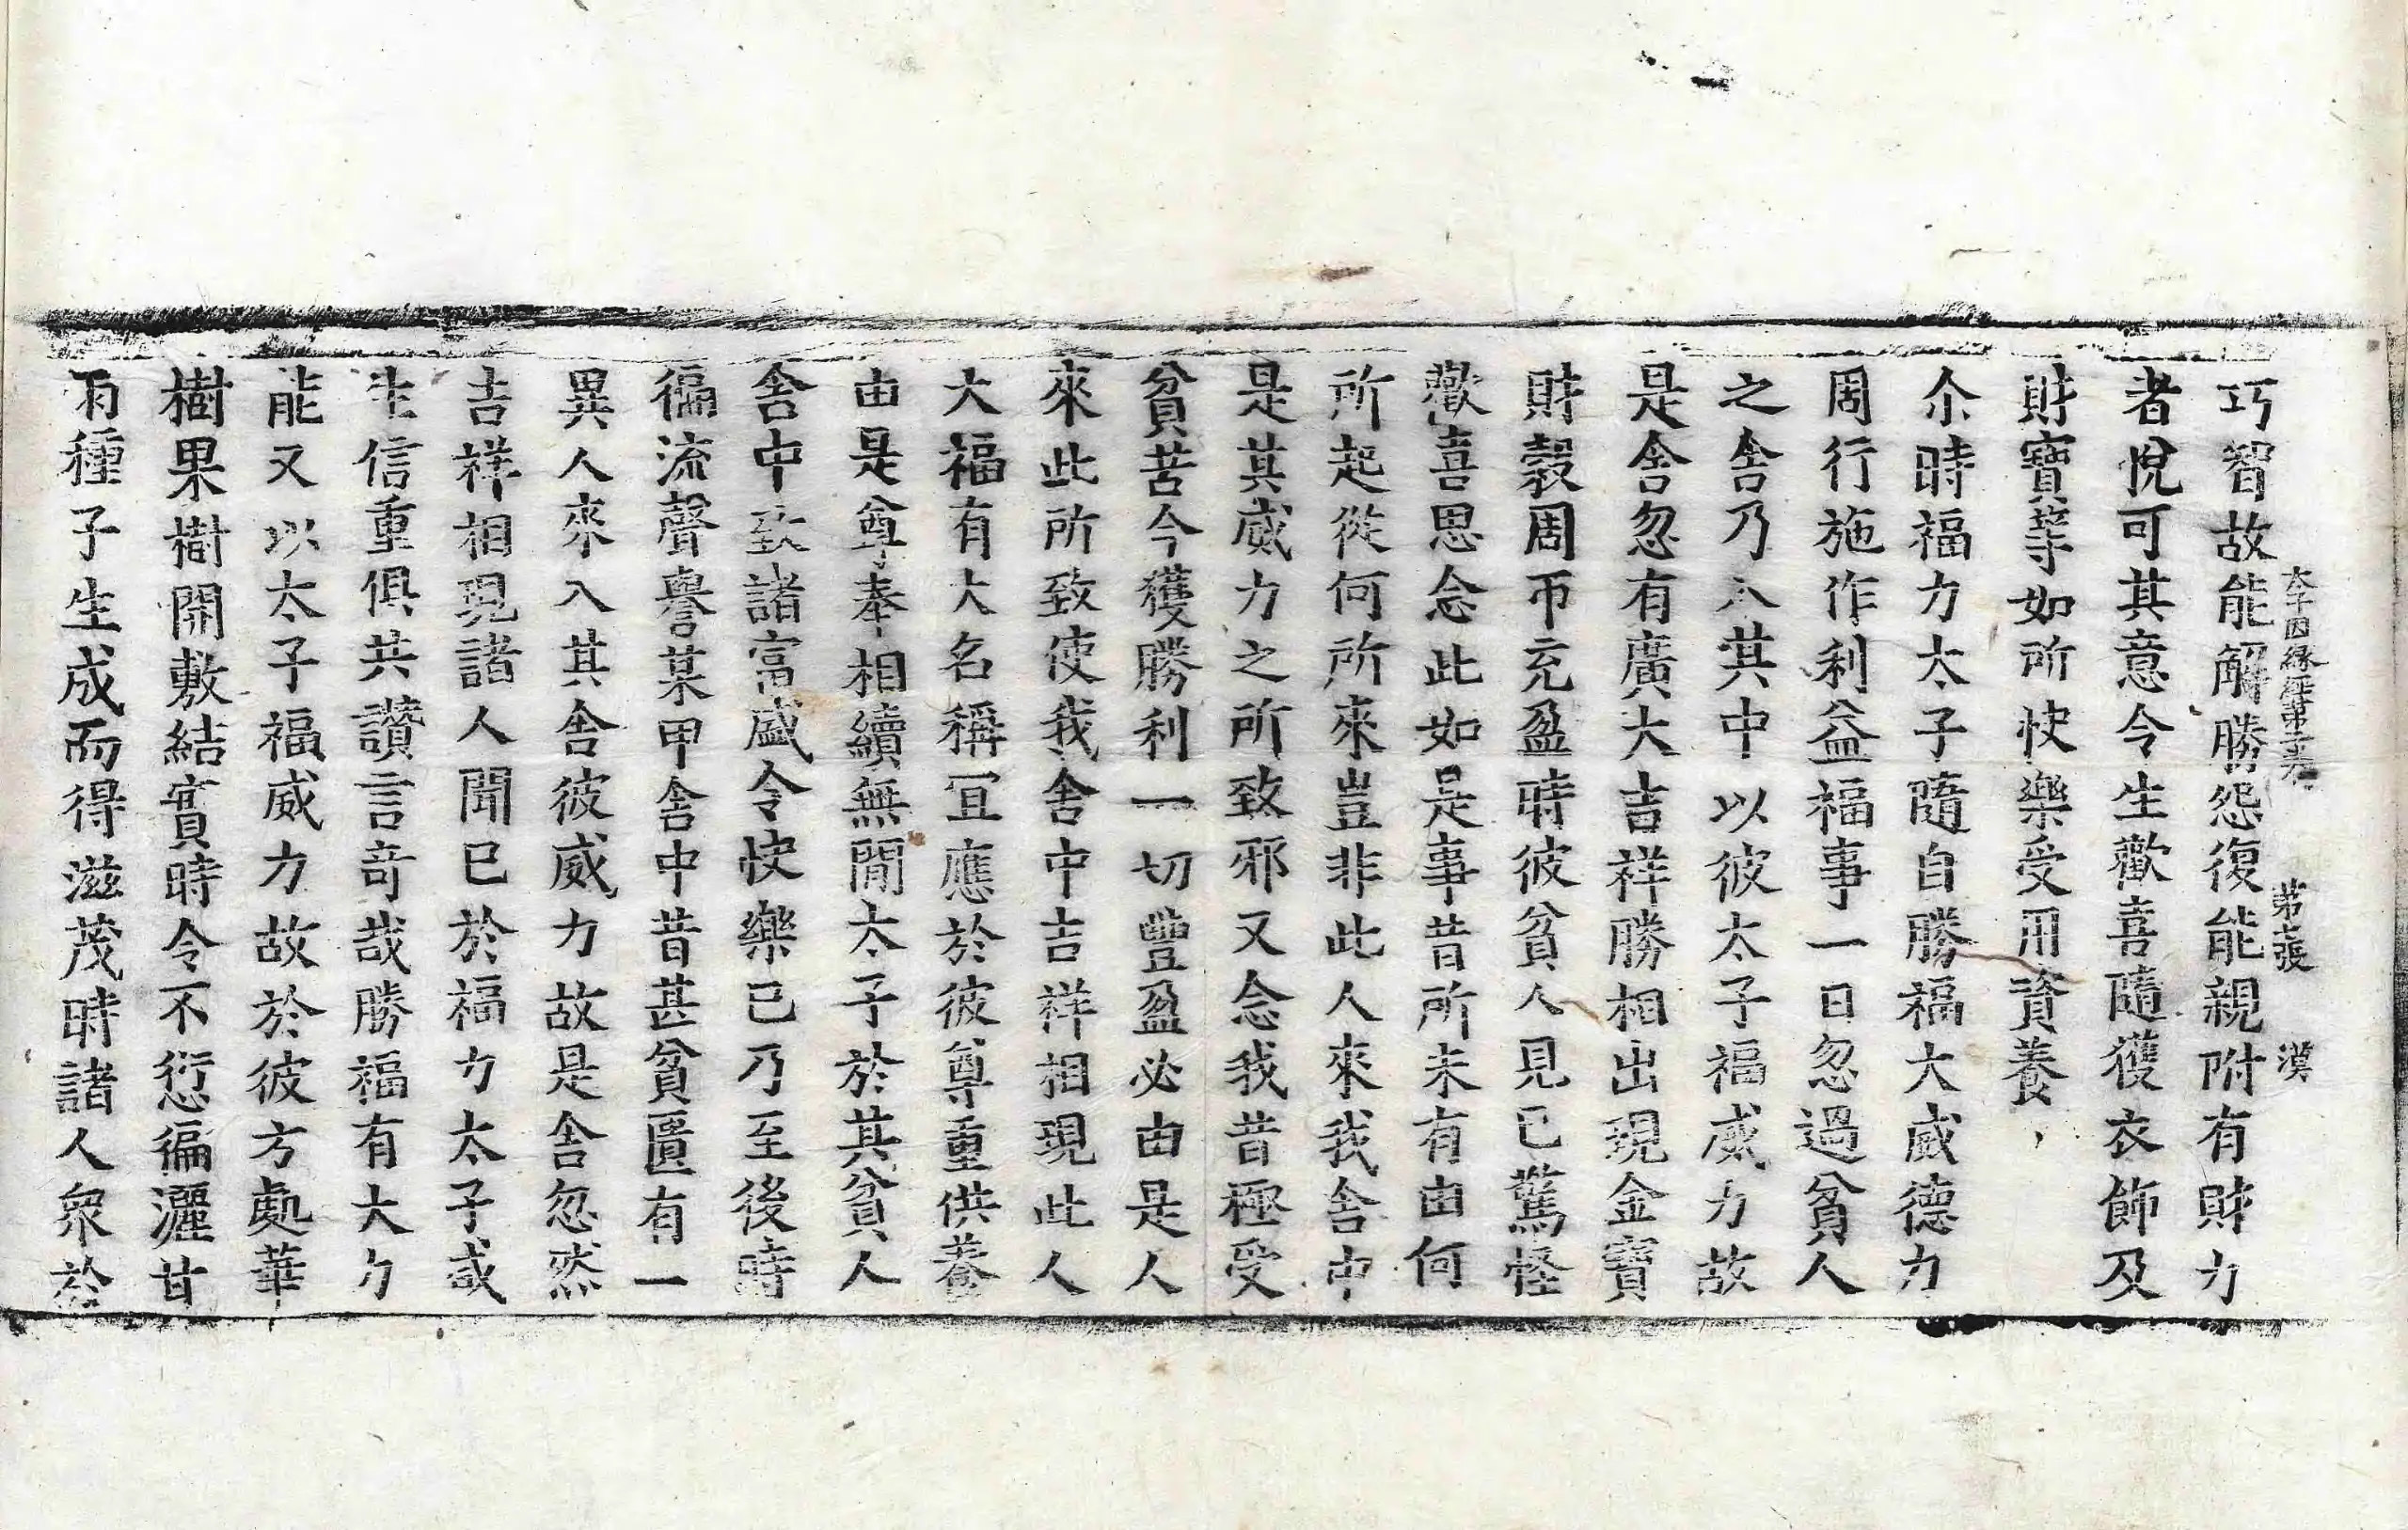 巧智故能解勝怨復能親附有財力
者悅可其意令生歡喜隨獲衣飾及
財寶等如所快樂受用資養
尒時福力太子隨自勝福大威德力
周行施作利益福事一日忽過貧人
之舍乃入其中以彼太子福威力故
是舍忽有廣大吉祥勝相出現金寶
財穀周帀充盈時彼貧人見已驚怪
歡喜思念此如是事昔所未有由何
所起從何所來豈非此人來我舍中
是其威力之所致邪又念我昔極受
貧苦今獲勝利一切豐盈必由是人
來此所致使我舍中吉祥相現此人
大福有大名稱宜應於彼尊重供養
由是尊奉相續無間太子於其貧人
舍中致諸富盛令快樂已乃至後時
徧流聲譽某甲舍中昔甚貧匱有一
異人來入其舍彼威力故是舍忽然
吉祥相現諸人聞已於福力太子咸
生信重俱共讚言奇哉勝福有大力
能又以太子福威力故於彼方處華
樹果樹開敷結實時令不愆徧灑甘
雨種子生成而得滋茂時諸人眾於